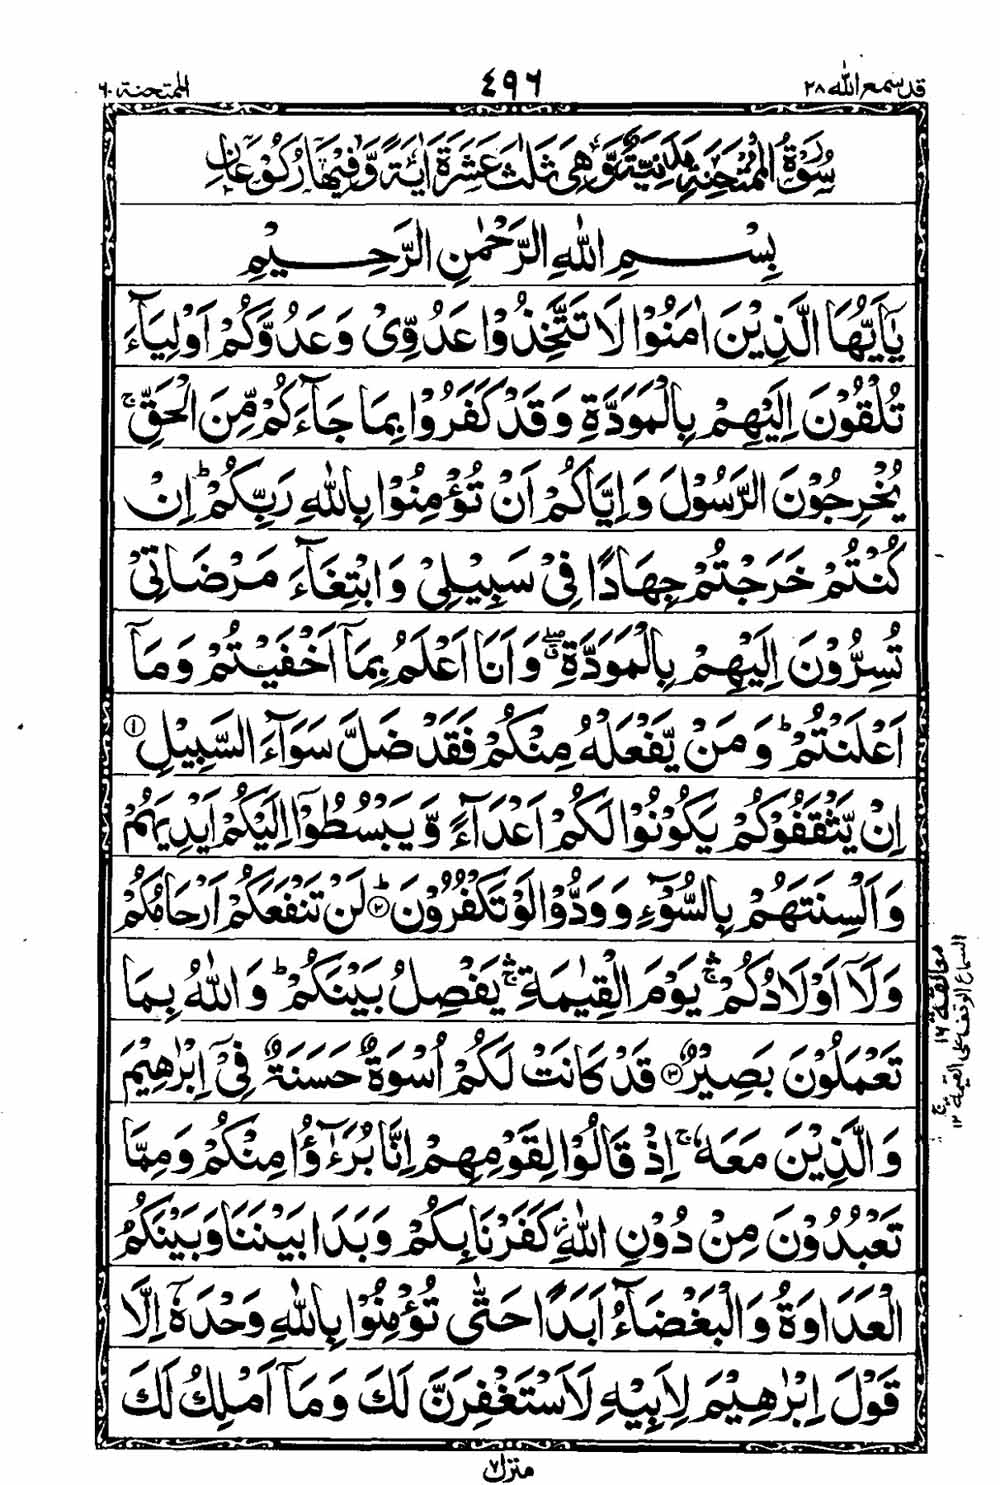 قد سمع الله ٢٨
٤٩٦
الممتحنة ٦٠
سُوْرَةُ الْمُمْتَحِنَةِ مَدَنِيَّةٌ وَّهِيَ ثَلٰثَ عَشَرَةَ اٰيَةً وَّفِيْهَا رُكُوْعَانِ
بِسْمِ اللّٰهِ الرَّحْمٰنِ الرَّحِيْمِ
يٰۤاَيُّهَا الَّذِيْنَ اٰمَنُوْا لَا تَتَّخِذُوْا عَدُوِّىْ وَعَدُوَّكُمْ اَوْلِيَآءَ
تُلْقُوْنَ اِلَيْهِمْ بِالْمَوَدَّةِ وَقَدْ كَفَرُوْا بِمَا جَآءَكُمْ مِّنَ الْحَقِّ ۚ
يُخْرِجُوْنَ الرَّسُوْلَ وَاِيَّاكُمْ اَنْ تُؤْمِنُوْا بِاللّٰهِ رَبِّكُمْ ؕ اِنْ
كُنْتُمْ خَرَجْتُمْ جِهَادًا فِىْ سَبِيْلِىْ وَابْتِغَآءَ مَرْضَاتِىْ
تُسِرُّوْنَ اِلَيْهِمْ بِالْمَوَدَّةِ ۖ وَاَنَا اَعْلَمُ بِمَاۤ اَخْفَيْتُمْ وَمَاۤ
اَعْلَنْتُمْ ؕ وَمَنْ يَّفْعَلْهُ مِنْكُمْ فَقَدْ ضَلَّ سَوَآءَ السَّبِيْلِ ①
اِنْ يَّثْقَفُوْكُمْ يَكُوْنُوْا لَكُمْ اَعْدَآءً وَّيَبْسُطُوْۤا اِلَيْكُمْ اَيْدِيَهُمْ
وَاَلْسِنَتَهُمْ بِالسُّوْٓءِ وَوَدُّوْا لَوْ تَكْفُرُوْنَ ؕ② لَنْ تَنْفَعَكُمْ اَرْحَامُكُمْ
وَلَاۤ اَوْلَادُكُمْ ۛۚ يَوْمَ الْقِيٰمَةِ ۛۚ يَفْصِلُ بَيْنَكُمْ ؕ وَاللّٰهُ بِمَا
تَعْمَلُوْنَ بَصِيْرٌ ③ قَدْ كَانَتْ لَكُمْ اُسْوَةٌ حَسَنَةٌ فِىْۤ اِبْرٰهِيْمَ
وَالَّذِيْنَ مَعَهٗ ۚ اِذْ قَالُوْا لِقَوْمِهِمْ اِنَّا بُرَءٰٓؤُا مِنْكُمْ وَمِمَّا
تَعْبُدُوْنَ مِنْ دُوْنِ اللّٰهِ ز كَفَرْنَا بِكُمْ وَبَدَا بَيْنَنَا وَبَيْنَكُمُ
الْعَدَاوَةُ وَالْبَغْضَآءُ اَبَدًا حَتّٰى تُؤْمِنُوْا بِاللّٰهِ وَحْدَهٗۤ اِلَّا
قَوْلَ اِبْرٰهِيْمَ لِاَبِيْهِ لَاَسْتَغْفِرَنَّ لَكَ وَمَاۤ اَمْلِكُ لَكَ
معانقة ١٦
منزل ٧